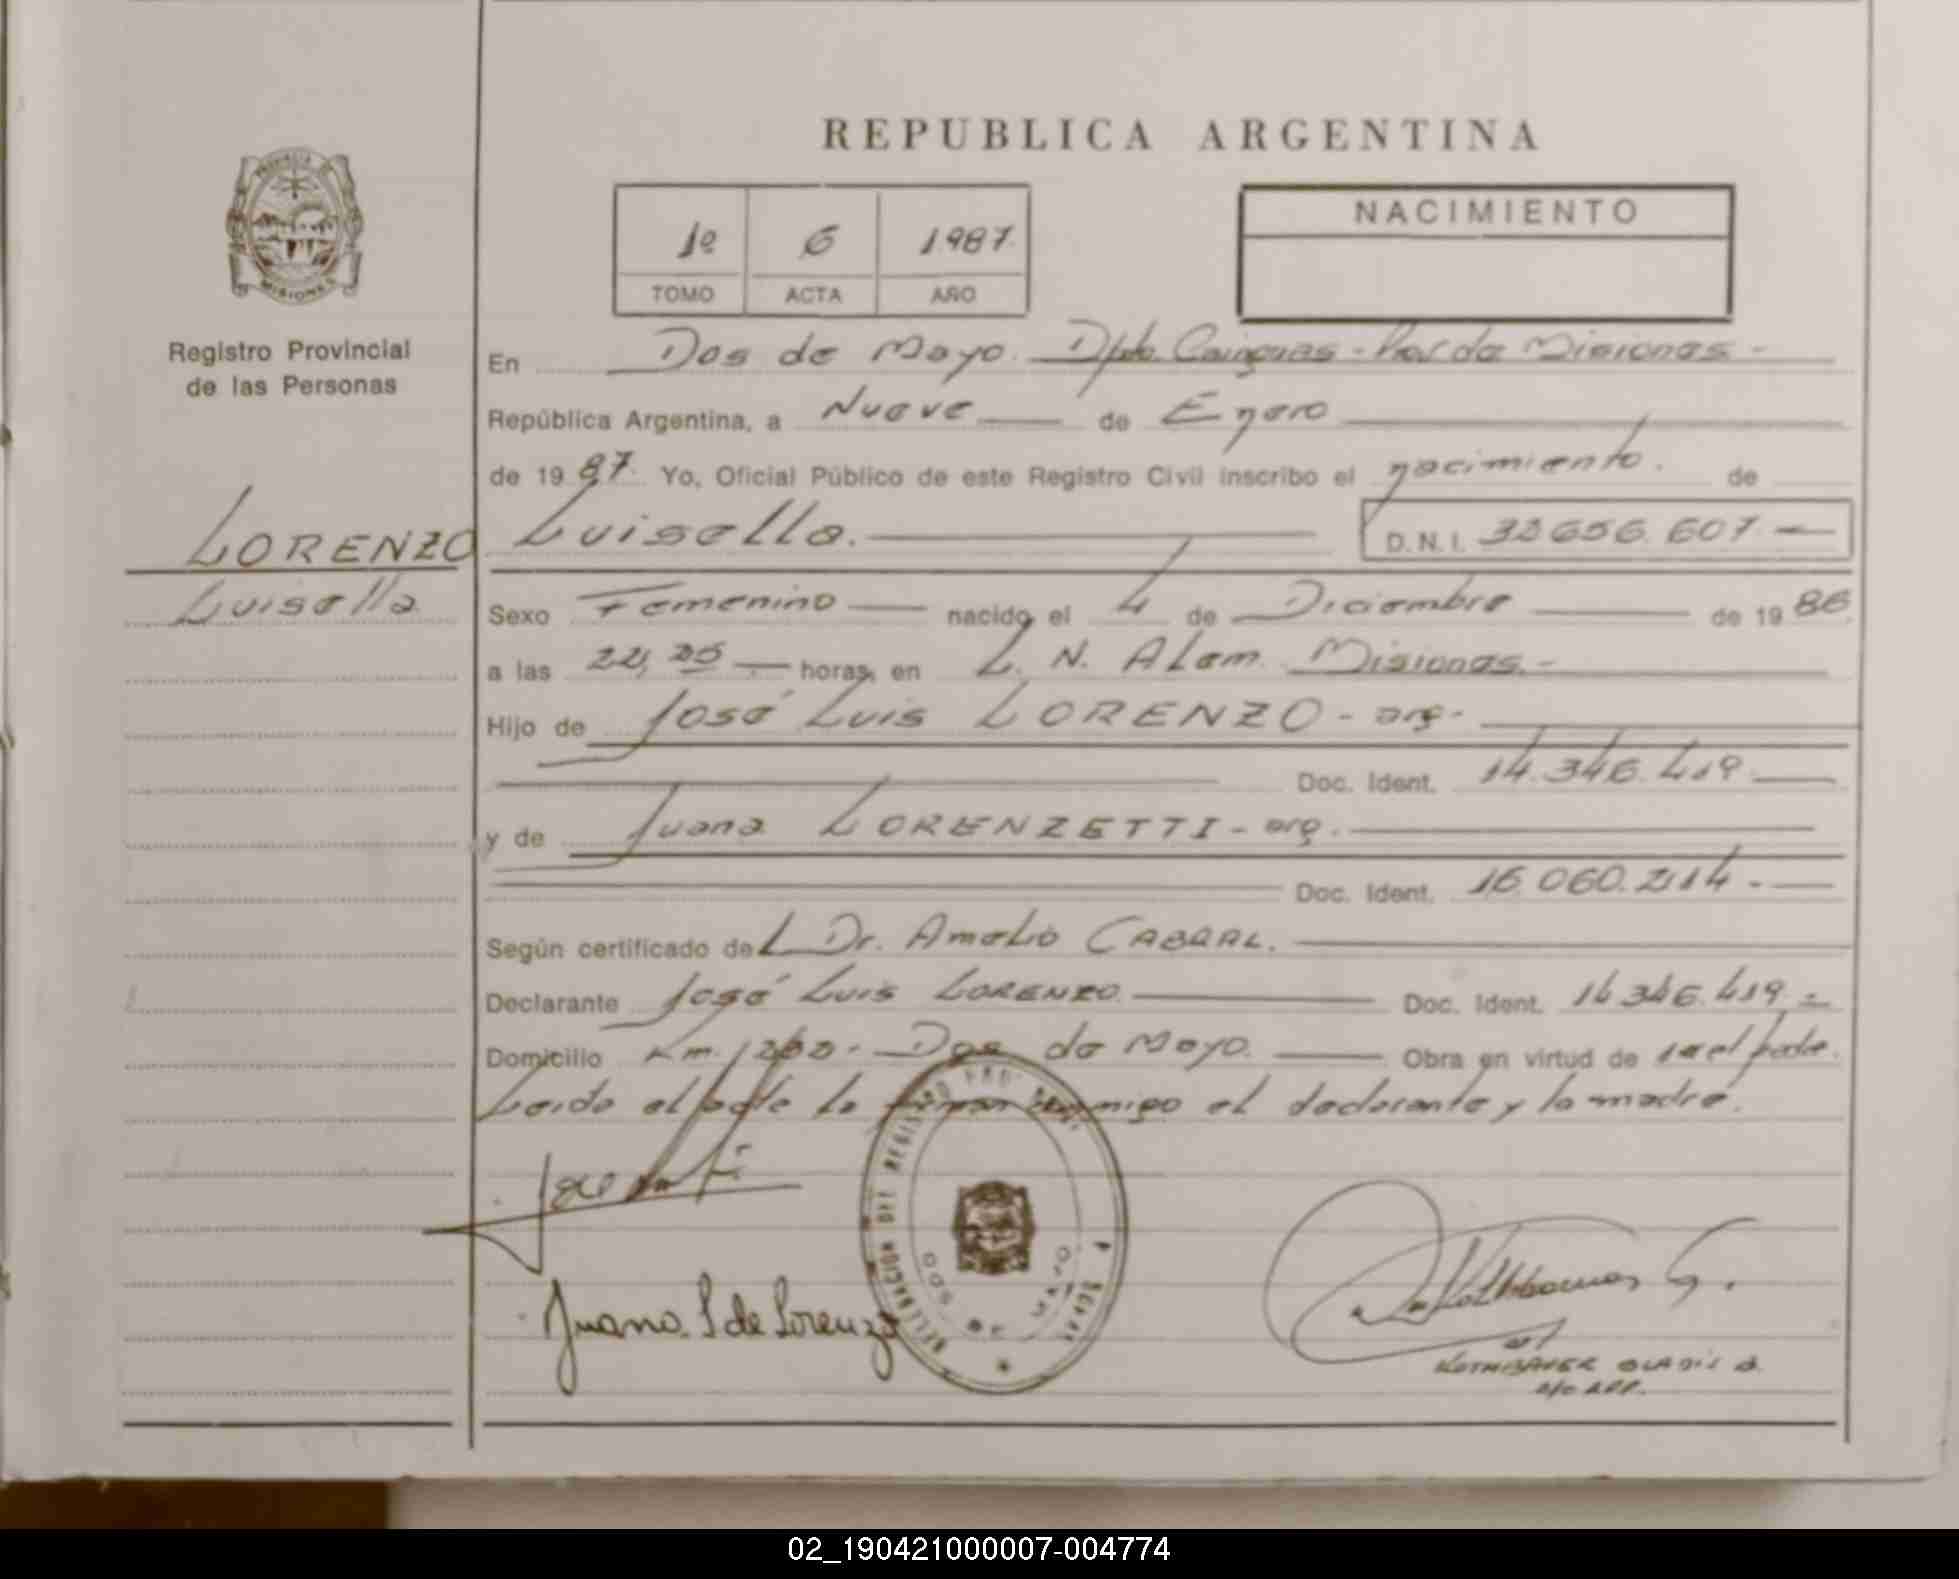 REPUBLICA ARGENTINA
1º 6 1987
TOMO ACTA AÑO
NACIMIENTO
PROVINCIA DE
MISIONES
Registro Provincial
de las Personas
LORENZO
Luisella
En Dos de Mayo. Dpto. Cainguas - de Misiones -
República Argentina, a Nueve de Enero
de 19 87. Yo, Oficial Público de este Registro Civil inscribo el nacimiento. de
Luisella. D.N.I. 32 656. 607. -
Sexo Femenino nacido el 4 de Diciembre de 19 86.
a las horas, en L. N. Alem. Misiones. -
Hijo de José Luis LORENZO - arg -
Doc. Ident. 14.346.419.
y de Juana LORENZETTI - arg.
Doc. Ident. 16.060.214 -
Según certificado de L Dr. Amelio CABRAL.
Declarante José Luis LORENZO Doc. Ident. 14 346.419. -
Domicilio Km. Dos de Mayo. Obra en virtud de ser el padre.
Leida el acta la firman conmigo el declarante y la madre.
DELEGACION DEL REGISTRO
DOS DE MAYO
Juana. L de Lorenzo
GLADIS
02_190421000007-004774